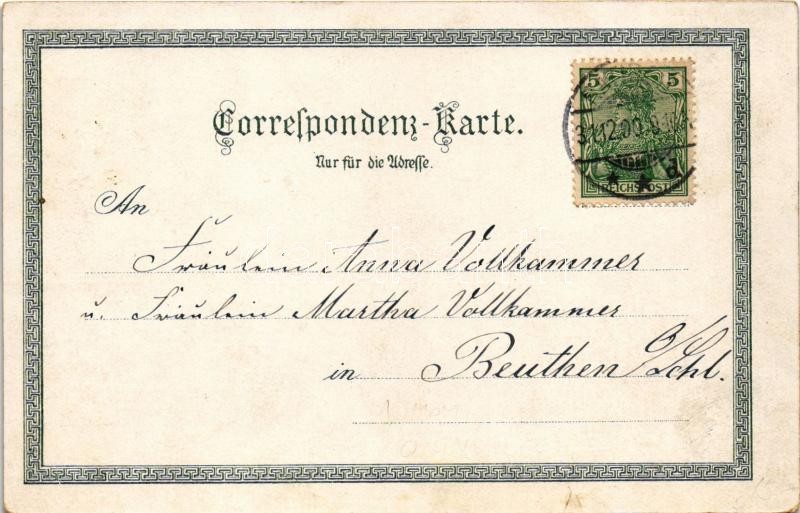 5 5
REICHSPOST
Correspondenz-Karte.
Nur für die Adresse.
An
Fräulein Anna Vollkammer
u. Fräulein Martha Vollkammer
in Beuthen O/Schl.